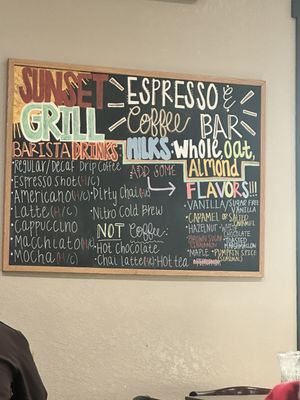 SUNSET
GRILL
ESPRESSO &
Coffee BAR
BARISTA DRINKS
MILKS: Whole, oat,
Almond
Regular/Decaf Drip Coffee
Espresso Shot (H/C)
Americano (H/C)
Latte (H/C)
Cappuccino
Macchiato (H/C)
Mocha (H/C)
Dirty Chai (H/C)
Nitro Cold Brew
NOT Coffee:
Hot Chocolate
Chai Latte (H/C)
Hot tea
ADD SOME
FLAVORS!!!
VANILLA/SUGAR FREE
VANILLA
CARAMEL OR SALTED
CARAMEL
HAZELNUT
CHOCOLATE
BROWN SUGAR
CINNAMON
TOASTED
MARSHMALLOW
MAPLE
PUMPKIN SPICE
(SEASONAL)